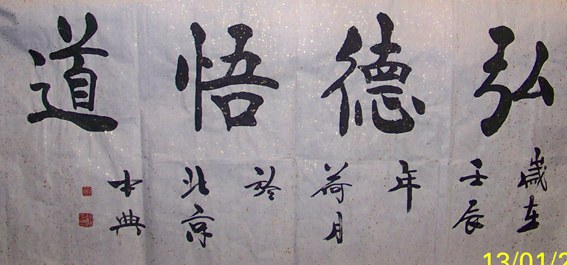 弘德悟道
歲在
壬辰
年
荷月
於
北京
典
13/01/2